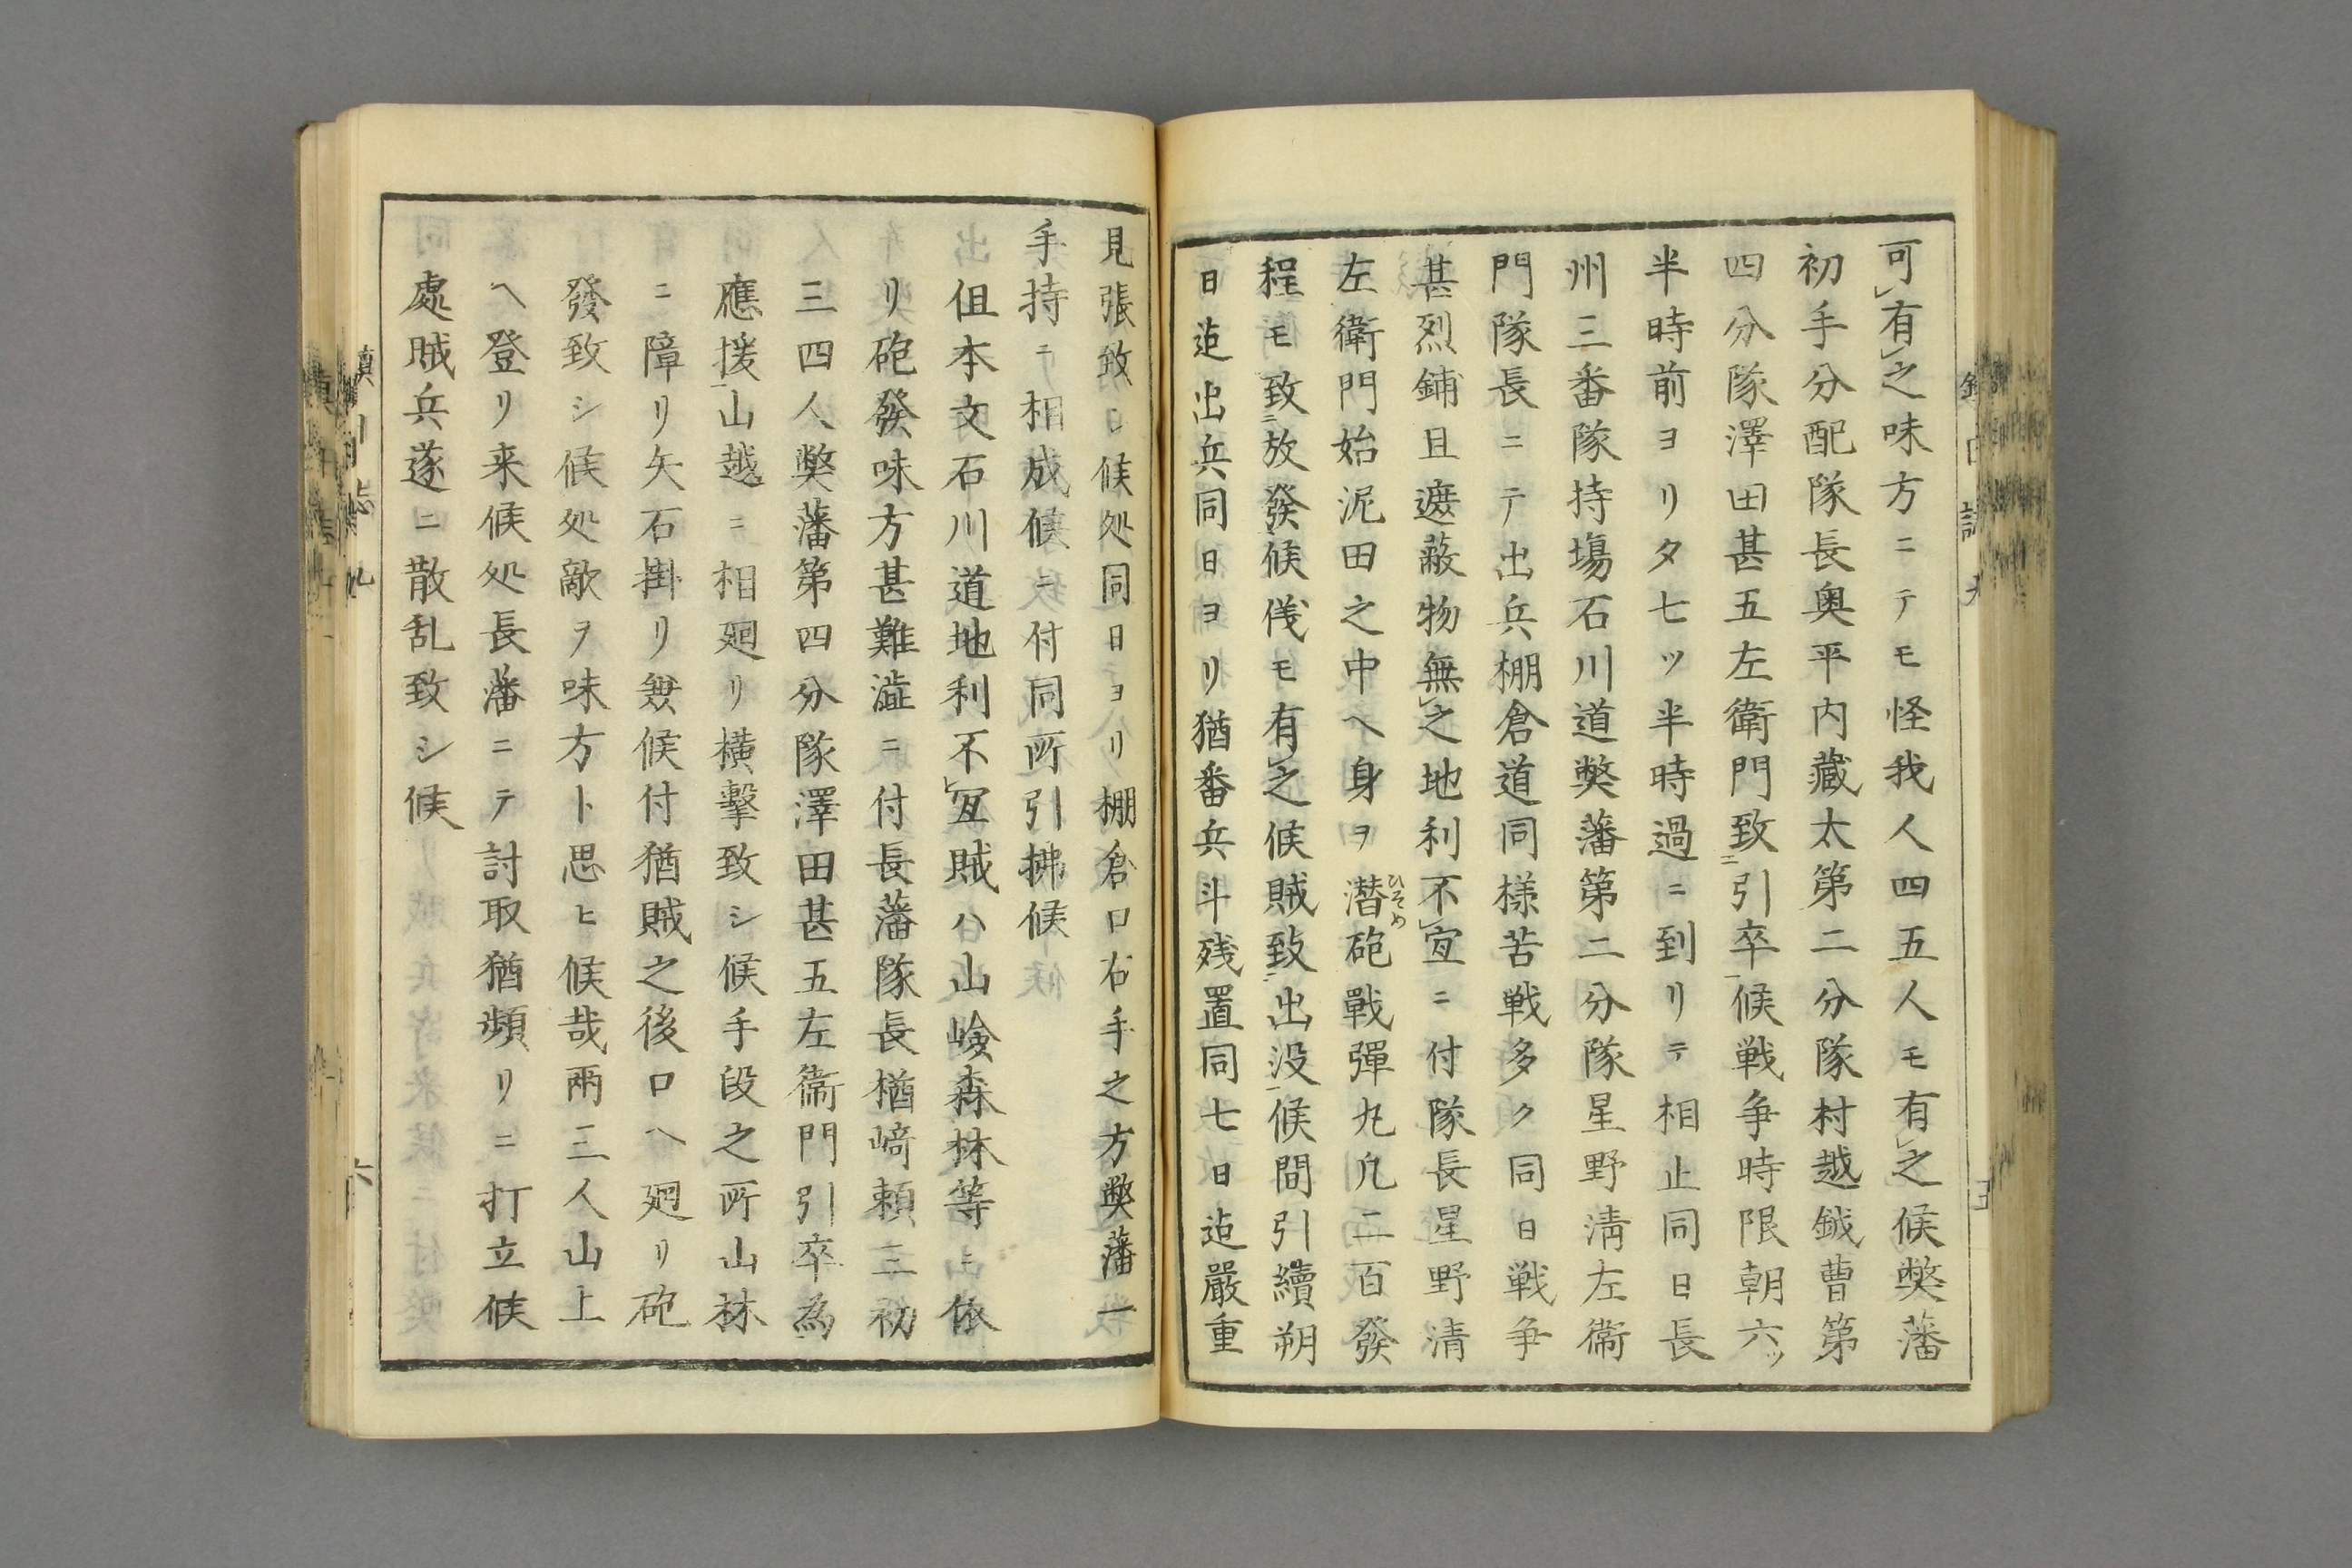 可レ有レ之味方ニテモ怪我人四五人モ有レ之候弊藩
初手分配隊長奥平内藏太第二分隊村越鉞曹第
四分隊澤田甚五左衛門致二引卒一候戦争時限朝六ッ
半時前ヨリタ七ッ半時過ニ到リテ相止同日長
州三番隊持場石川道弊藩第二分隊星野淸左衛
門隊長ニテ出兵棚倉道同様苦戦多ク同日戦争
甚烈鋪且遮蔽物無レ之地利不レ宜ニ付隊長星野清
左衛門始泥田之中ヘ身ヲ潜ひそめ砲戰彈丸凡二百發
程モ致二放發一候儀モ有レ之候賊致二出没一候間引續朔
日迠出兵同日ヨリ猶番兵斗残置同七日迠嚴重
見張致シ候処同日ヨリ棚倉口右手之方弊藩一
手持ニ相成候ニ付同所引拂候
伹本文石川道地利不レ宜賊ハ山嶮森林等ニ依
リ砲發味方甚難澁ニ付長藩隊長楢﨑頼三初
三四人弊藩第四分隊澤田甚五左衛門引卒為二
應援一山越ニ相廻リ横擊致シ候手段之所山林
ニ障リ矢石掛リ兼候付猶賊之後口ヘ廻リ砲
發致シ候処敵ヲ味方ト思ヒ候哉兩三人山上
ヘ登リ来候処長藩ニテ討取猶頻リニ打立候
處賊兵遂ニ散乱致シ候
六